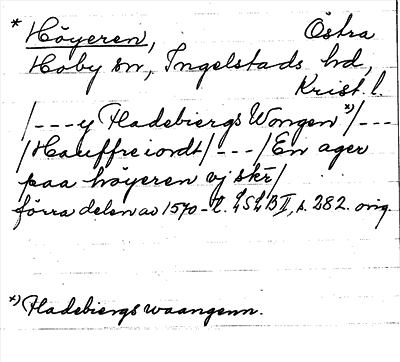 * Höyeren, Östra
Hoby sn, Ingelstads hd,
Krist. l.
/---y Hadebiergs Wongen *)/---
/Hauffreiordt/---/En ager
paa höyeren vj skr/
förra delen av 1570-t. LSLB II, s. 282. orig.
*) Hadebiergs waangenn.